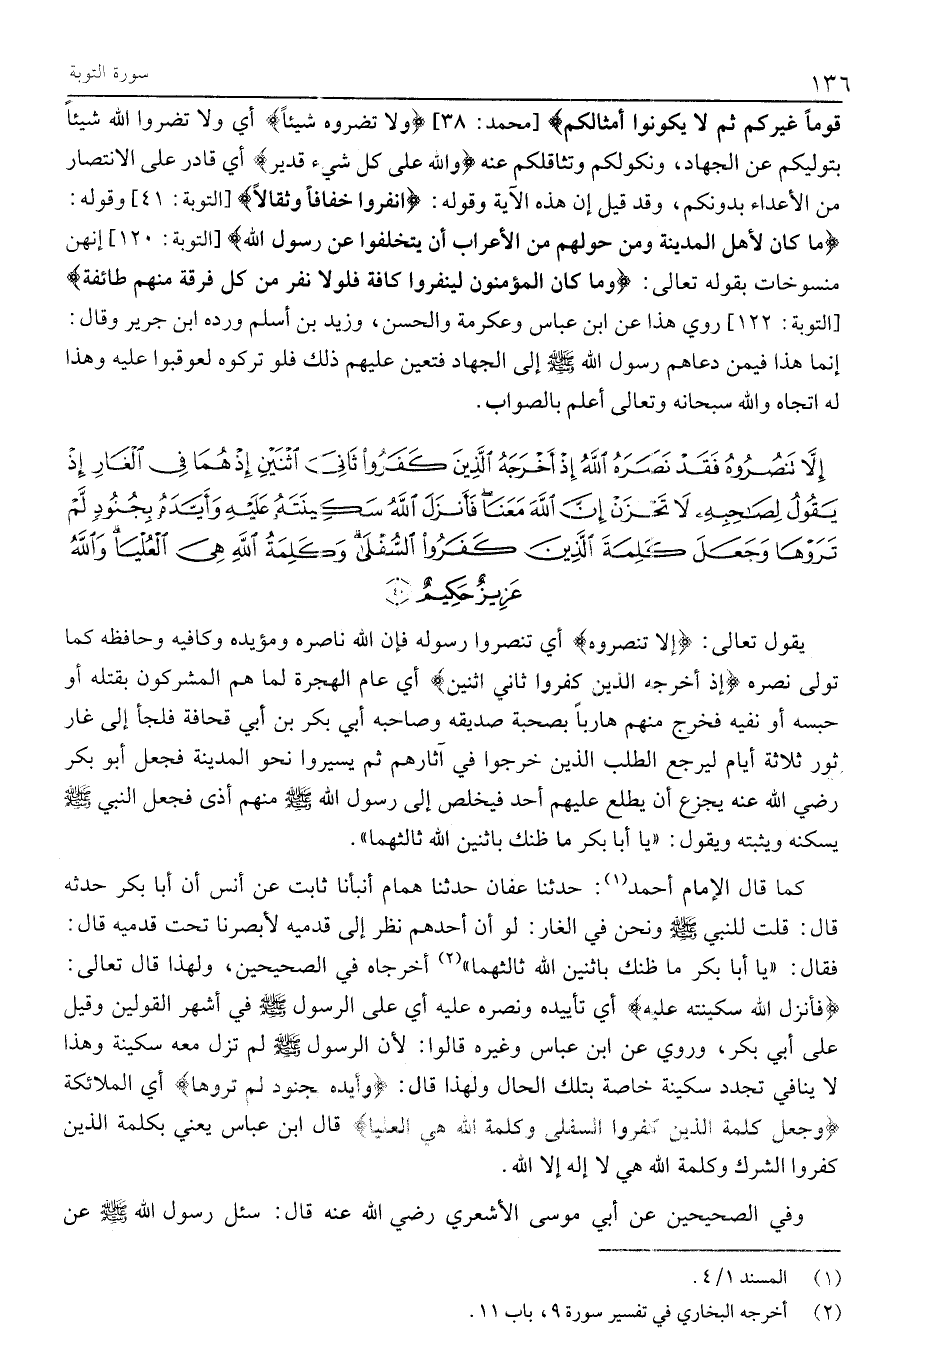 ١٣٦ سورة التوبة
قوماً غيركم ثم لا يكونوا أمثالكم﴾ [محمد: ٣٨] ﴿ولا تضروه شيئاً﴾ أي ولا تضروا الله شيئاً
بتوليكم عن الجهاد، ونكولكم وتثاقلكم عنه ﴿والله على كل شيء قدير﴾ أي قادر على الانتصار
من الأعداء بدونكم، وقد قيل إن هذه الآية وقوله: ﴿انفروا خفافاً وثقالاً﴾ [التوبة: ٤١] وقوله:
﴿ما كان لأهل المدينة ومن حولهم من الأعراب أن يتخلفوا عن رسول الله﴾ [التوبة: ١٢٠] إنهن
منسوخات بقوله تعالى: ﴿وما كان المؤمنون لينفروا كافة فلولا نفر من كل فرقة منهم طائفة﴾
[التوبة: ١٢٢] روي هذا عن ابن عباس وعكرمة والحسن، وزيد بن أسلم ورده ابن جرير وقال:
إنما هذا فيمن دعاهم رسول الله ﷺ إلى الجهاد فتعين عليهم ذلك فلو تركوه لعوقبوا عليه وهذا
له اتجاه والله سبحانه وتعالى أعلم بالصواب.
إِلَّا تَنصُرُوهُ فَقَدْ نَصَرَهُ ٱللَّهُ إِذْ أَخْرَجَهُ ٱلَّذِينَ كَفَرُوا۟ ثَانِىَ ٱثْنَيْنِ إِذْ هُمَا فِى ٱلْغَارِ إِذْ
يَقُولُ لِصَـٰحِبِهِۦ لَا تَحْزَنْ إِنَّ ٱللَّهَ مَعَنَا ۖ فَأَنزَلَ ٱللَّهُ سَكِينَتَهُۥ عَلَيْهِ وَأَيَّدَهُۥ بِجُنُودٍ لَّمْ
تَرَوْهَا وَجَعَلَ كَلِمَةَ ٱلَّذِينَ كَفَرُوا۟ ٱلسُّفْلَىٰ ۗ وَكَلِمَةُ ٱللَّهِ هِىَ ٱلْعُلْيَا ۗ وَٱللَّهُ
عَزِيزٌ حَكِيمٌ ٤٠
يقول تعالى: ﴿إلا تنصروه﴾ أي تنصروا رسوله فإن الله ناصره ومؤيده وكافيه وحافظه كما
تولى نصره ﴿إذ أخرجه الذين كفروا ثاني اثنين﴾ أي عام الهجرة لما هم المشركون بقتله أو
حبسه أو نفيه فخرج منهم هارباً بصحبة صديقه وصاحبه أبي بكر بن أبي قحافة فلجأ إلى غار
ثور ثلاثة أيام ليرجع الطلب الذين خرجوا في آثارهم ثم يسيروا نحو المدينة فجعل أبو بكر
رضي الله عنه يجزع أن يطلع عليهم أحد فيخلص إلى رسول الله ﷺ منهم أذى فجعل النبي ﷺ
يسكنه ويثبته ويقول: «يا أبا بكر ما ظنك باثنين الله ثالثهما».
كما قال الإمام أحمد(١): حدثنا عفان حدثنا همام أنبأنا ثابت عن أنس أن أبا بكر حدثه
قال: قلت للنبي ﷺ ونحن في الغار: لو أن أحدهم نظر إلى قدميه لأبصرنا تحت قدميه قال:
فقال: «يا أبا بكر ما ظنك باثنين الله ثالثهما»(٢) أخرجاه في الصحيحين، ولهذا قال تعالى:
﴿فأنزل الله سكينته عليه﴾ أي تأييده ونصره عليه أي على الرسول ﷺ في أشهر القولين وقيل
على أبي بكر، وروي عن ابن عباس وغيره قالوا: لأن الرسول ﷺ لم تزل معه سكينة وهذا
لا ينافي تجدد سكينة خاصة بتلك الحال ولهذا قال: ﴿وأيده بجنود لم تروها﴾ أي الملائكة
﴿وجعل كلمة الذين كفروا السفلى وكلمة الله هي العليا﴾ قال ابن عباس يعني بكلمة الذين
كفروا الشرك وكلمة الله هي لا إله إلا الله.
وفي الصحيحين عن أبي موسى الأشعري رضي الله عنه قال: سئل رسول الله ﷺ عن
(١) المسند ٤/١.
(٢) أخرجه البخاري في تفسير سورة ٩، باب ١١.